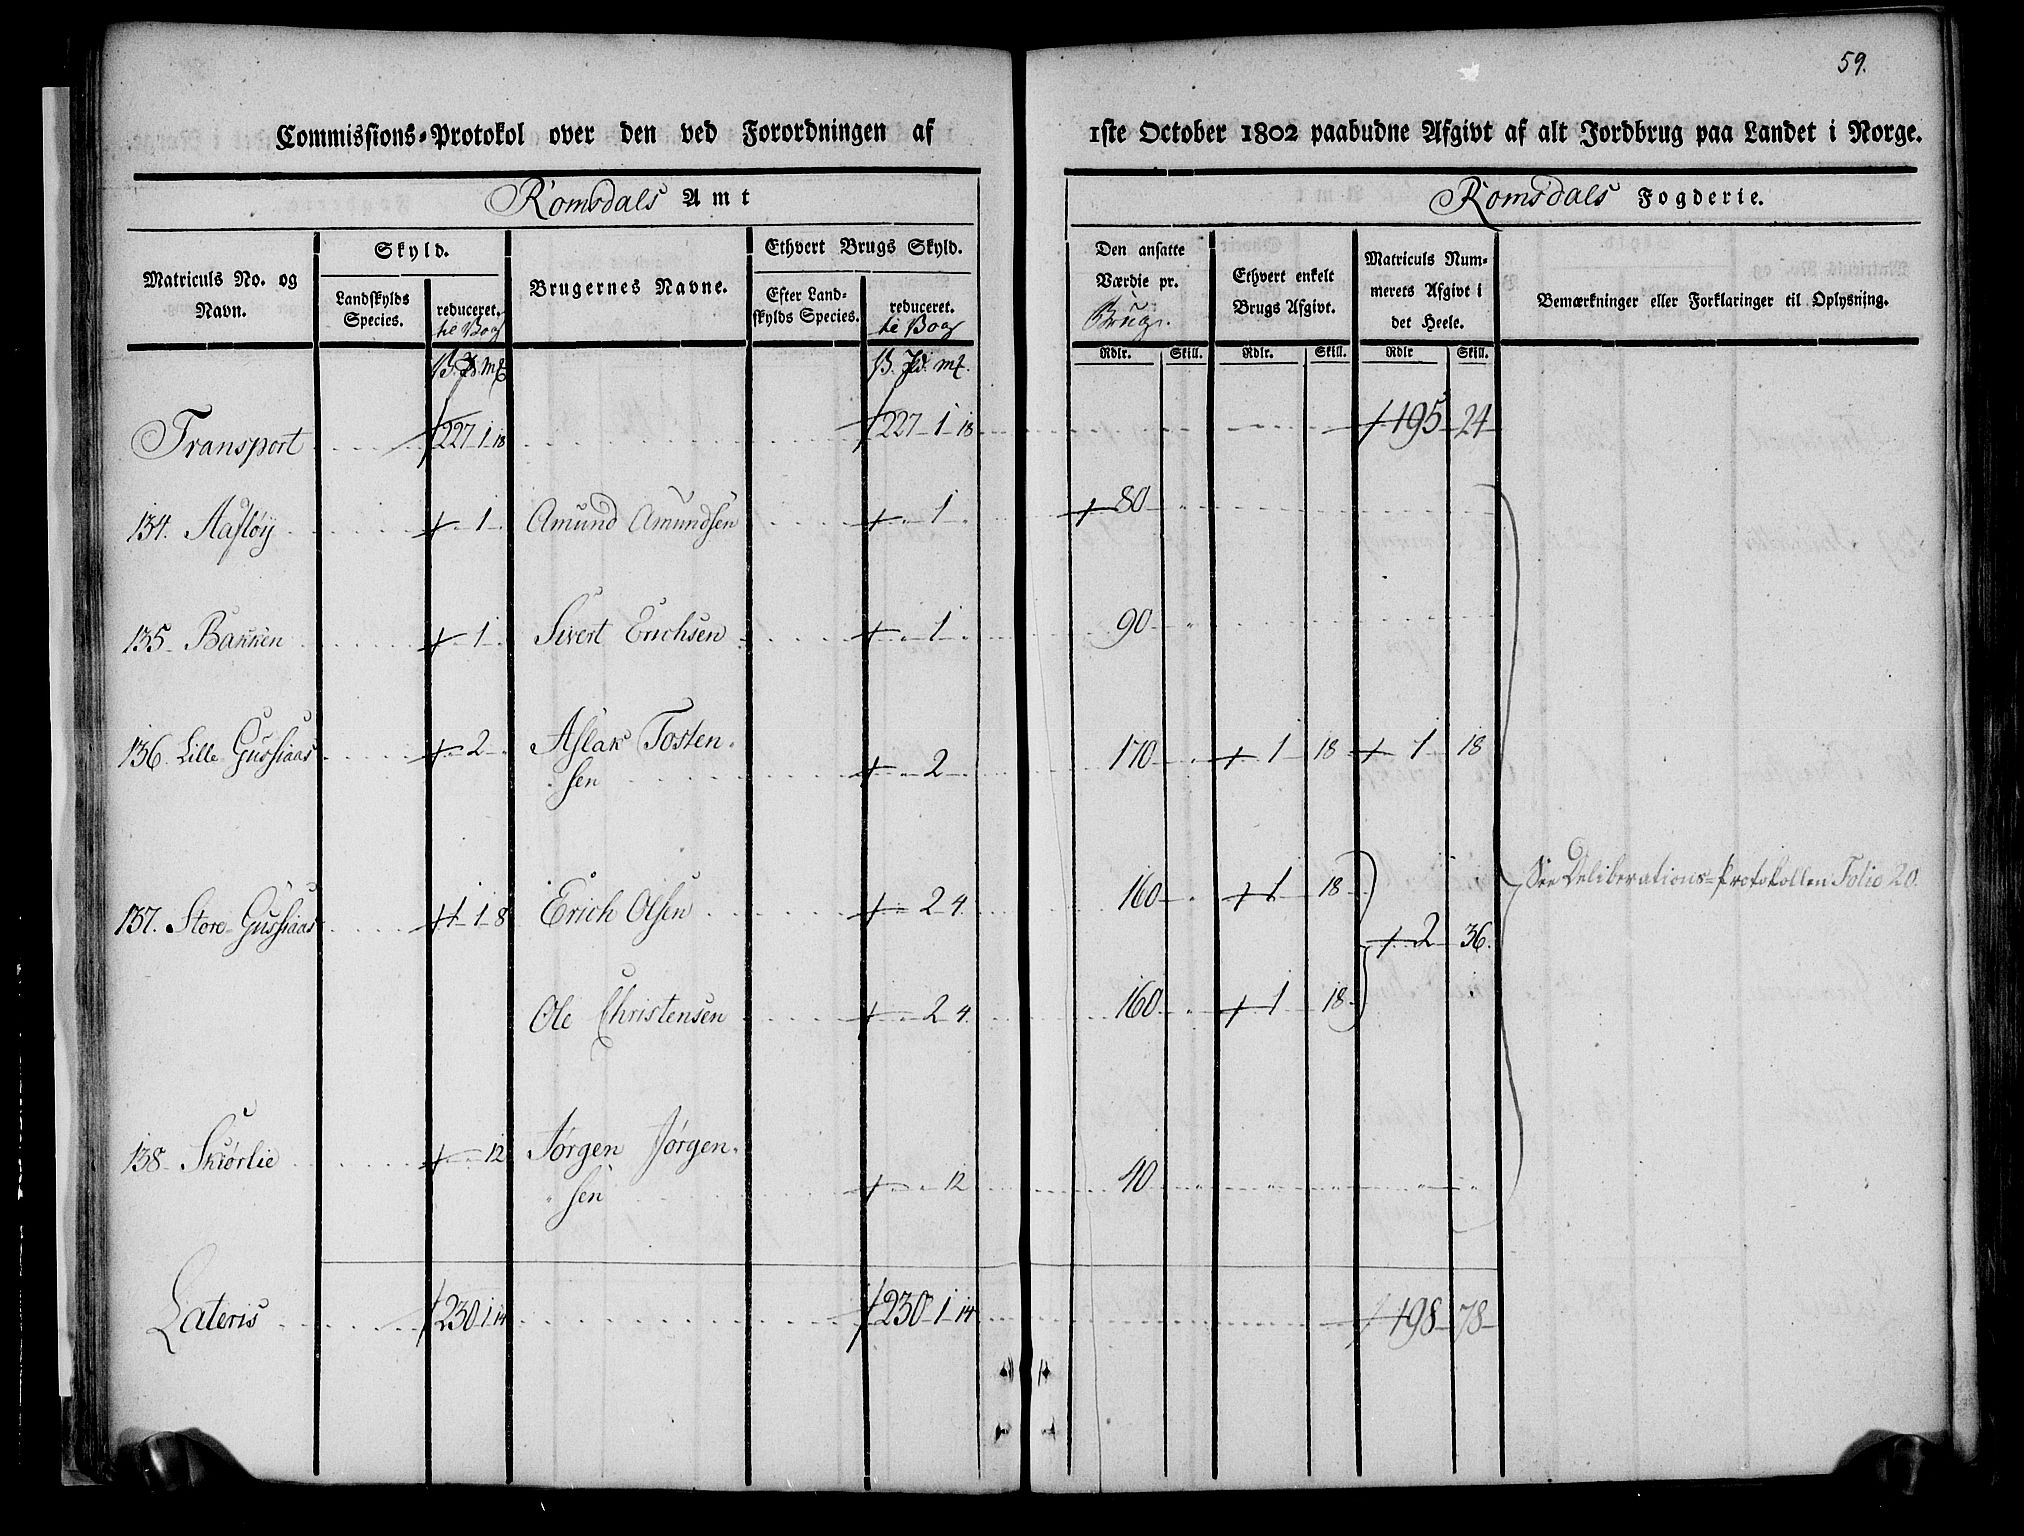 59.
Commissions-Protokol over den ved Forordningen af 1ste October 1802 paabudne Afgivt af alt Jordbrug paa Landet i Norge.
Romsdals Amt
Romsdals Fogderie.
Matriculs No. og Navn.
Skyld.
Landskylds Species.
reduceret. te Vog
Brugernes Navne.
Ethvert Brugs Skyld.
Efter Landskylds Species.
reduceret. te Vog
Den ansatte Værdie pr. Brug.
Ethvert enkelt Brugs Afgivt.
Matriculs Nummerets Afgivt i det Heele.
Bemærkninger eller Forklaringer til Oplysning.
Rdlr. Skill. Rdlr. Skill. Rdlr Skill.
Transport 227 1 18 227 1 18 195 24
134. Aafløy 1 Amund Amundsen 1 80
135 Bakken 1 Sivert Erichsen 1 90
136. Lille Gussiaas 2 Aslak Tosten-
sen 2 170 1 18 1 18
137. Store Gussiaas 1 1 8 Erich Olsen 2 4 160 1 18
2 36.
Ole Christensen 2 4 160 1 18
See Deliberations-Protokollen Folio 20.
138 Skiørlie 12 Jørgen Jørgen-
sen 12 40
Lateris 230 1 14 230 1 14 198 78